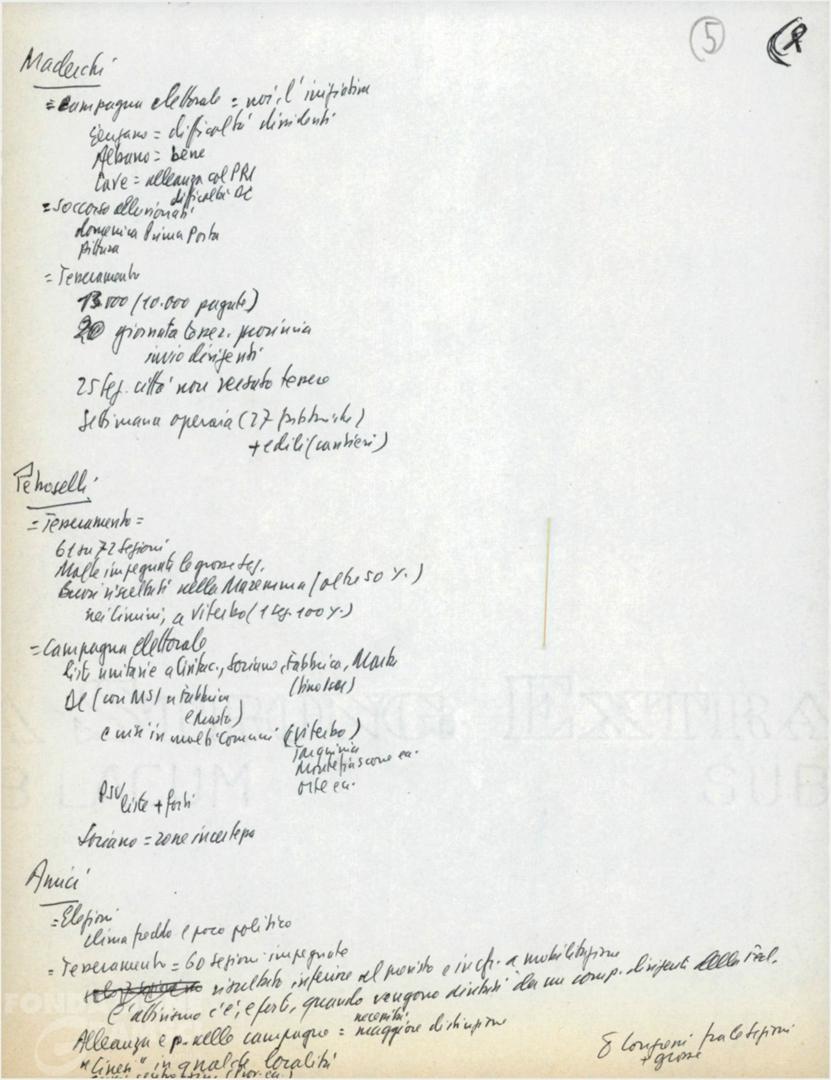 5
Maderchi
= Campagna elettorale = noi l'iniziativa
Genzano = difficoltà dissidenti
Albano = bene
Cave = alleanza col PRI
difficoltà DC
= Soccorso alluvionati
domenica Prima Porta
pittura
= Tesseramento
13000 (10.000 pagate)
20 giornata tesser. provincia
invio dirigenti
25 sez. città non versato tessere
Settimana operaia (27 fabbriche)
+ edili (cantieri)
Petroselli
= Tesseramento =
61 su 72 sezioni
Molte impegnate le grosse sez.
Buoni risultati nella Maremma (oltre 50 %)
nei Cimini, a Viterbo (1 sez. 100 %)
= Campagna elettorale
liste unitarie a Civitac., Soriano, Fabbrica, Marta
DC (con MSI a Fabbrica
e Marta)
e unità in molti comuni (Viterbo)
Tarquinia
Montefiascone ecc.
Orte ecc.
PSU liste + forti
Soriano = zone incertezza
Amici
= Elezioni
clima freddo e poco politico
= Tesseramento = 60 sezioni impegnate
risultato inferiore al previsto e in cfr. a mobilitazione
L'attivismo c'è, e forte, quando vengono diretti da un comp. dirigente della Fed.
Alleanza e p. nelle campagne = necessità maggiore distinzione
"Cinesi" in qualche località
8 Congressi fra le sezioni
+ grosse